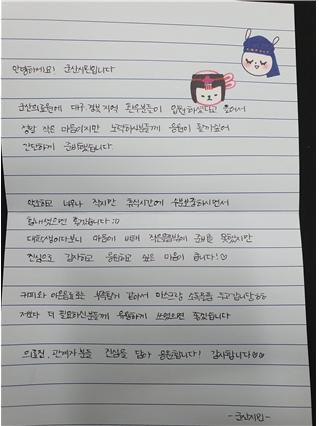 안녕하세요! 군산시민입니다
군산의료원에 대구,경북지역 환우분들이 입원하셨다고 들어서
정말 작은 마음이지만 노력하시는분들께 응원이 될까싶어
간단하게 준비했습니다.
약소하고 너무나 작지만 휴식시간에 수분보충하시면서
힘내셨으면 좋겠습니다 :)
대학생이다보니 마음에 비해 작은것들밖에 준비를 못했지만
진심으로 감사하고 응원하고 싶은 마음이 큽니다!♡
커피와 이온음료는 부족할거 같아서 마스크랑 소독용품 두고갑니다ㅎㅎ
저보다 더 필요하신분들께 유용하게 쓰였으면 좋겠습니다
의료진, 관계자분들 진심을 담아 응원합니다! 감사합니다♡♡
-군산시민-